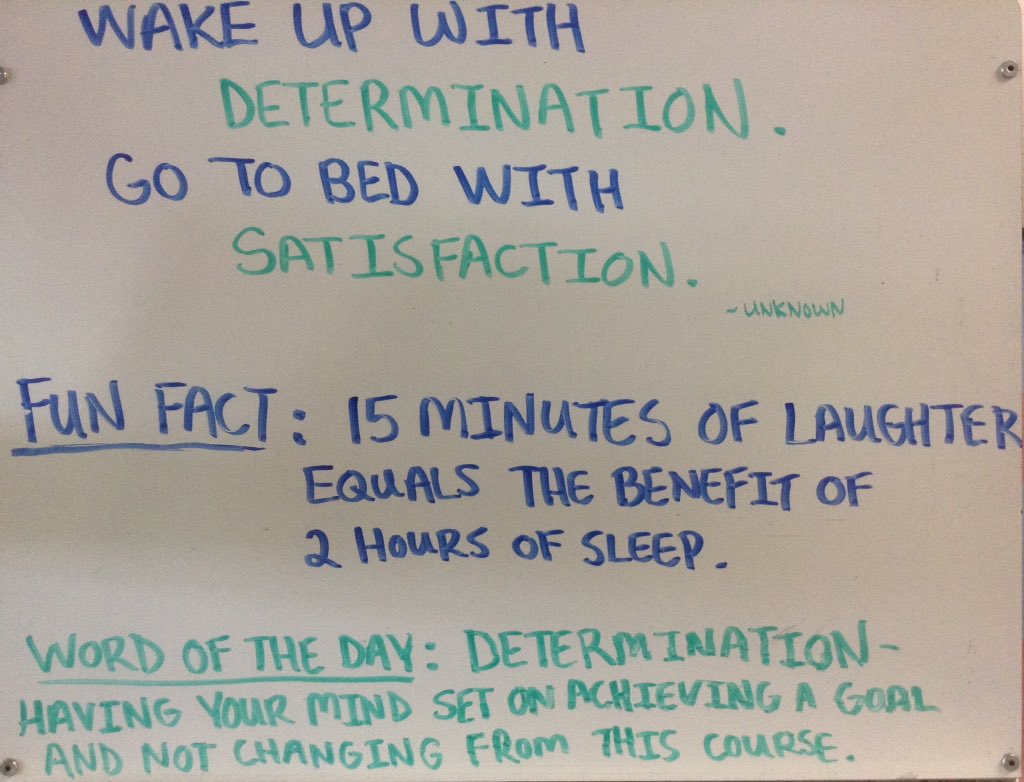 WAKE UP WITH
DETERMINATION.
GO TO BED WITH
SATISFACTION.
~UNKNOWN
FUN FACT: 15 MINUTES OF LAUGHTER
EQUALS THE BENEFIT OF
2 HOURS OF SLEEP.
WORD OF THE DAY: DETERMINATION-
HAVING YOUR MIND SET ON ACHIEVING A GOAL
AND NOT CHANGING FROM THIS COURSE.